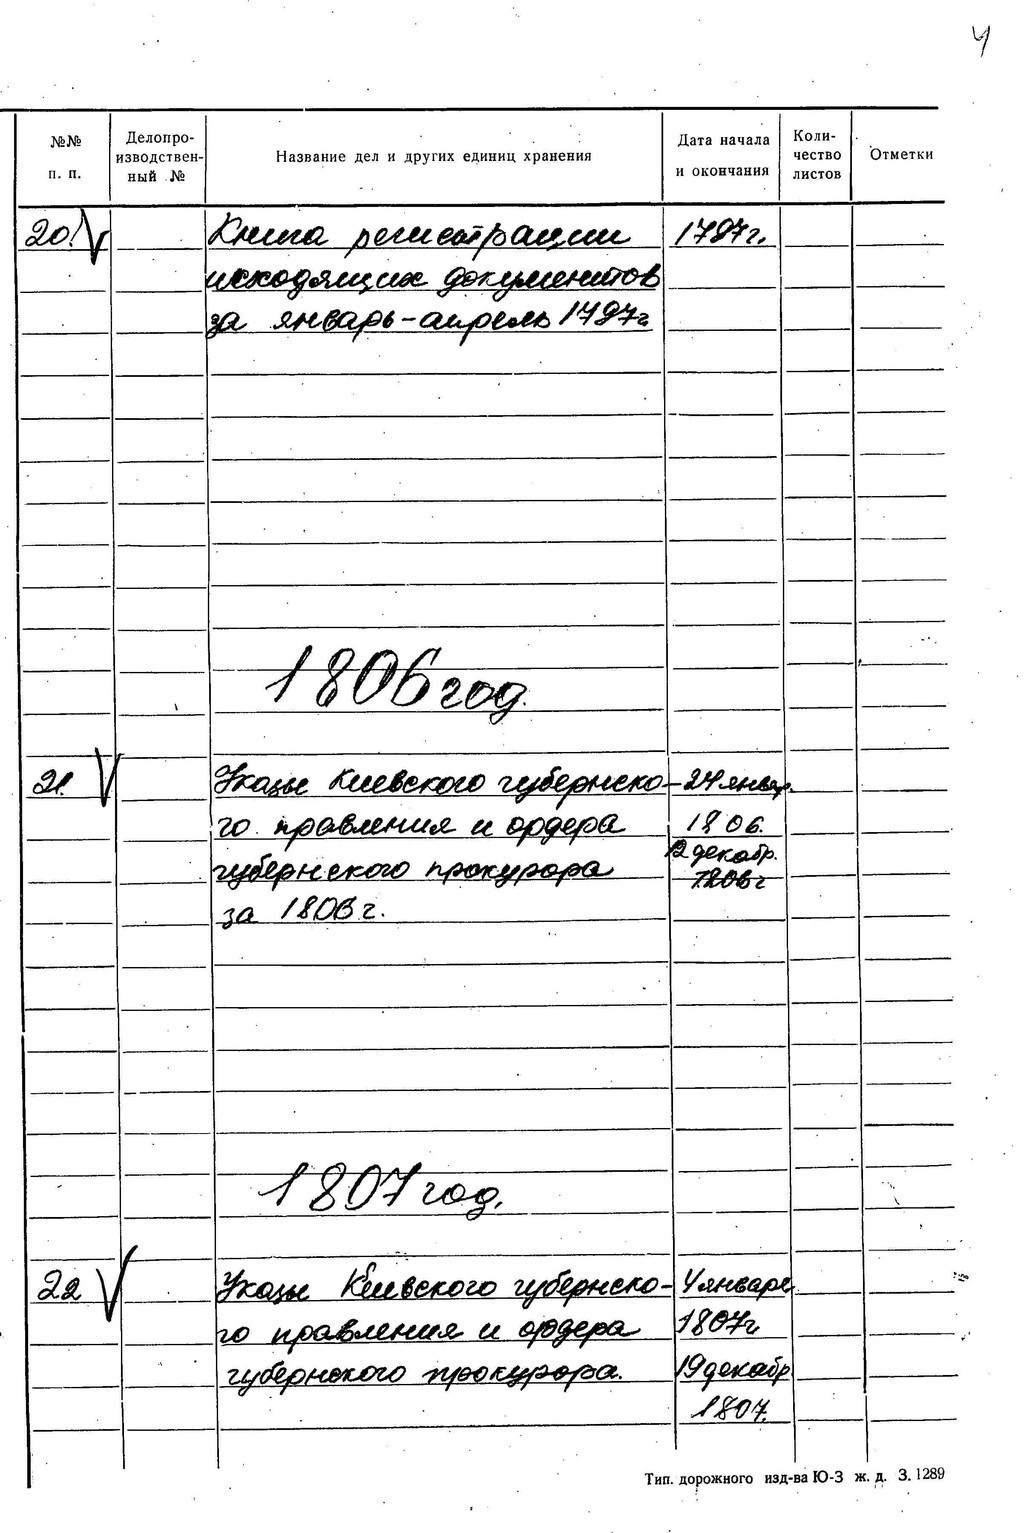 4
№№ п. п.
Делопро-
изводствен-
ный №
Название дел и других единиц хранения
Дата начала
и окончания
Коли-
чество
листов
Отметки
20. Книга регистрации 1797г.
исходящих документов
за январь-апрель 1797г
1806 год.
21. Указы Киевского губернско- 24 январ.
го правления и ордера 1806.
губернского прокурора 12 декабр.
1806г
за 1806г.
1807 год.
22 Указы Киевского губернско- 4 января
го правления и ордера 1807г
губернского прокурора. 19 декабр
1807.
Тип. дорожного изд-ва Ю-З ж. д. З. 1289